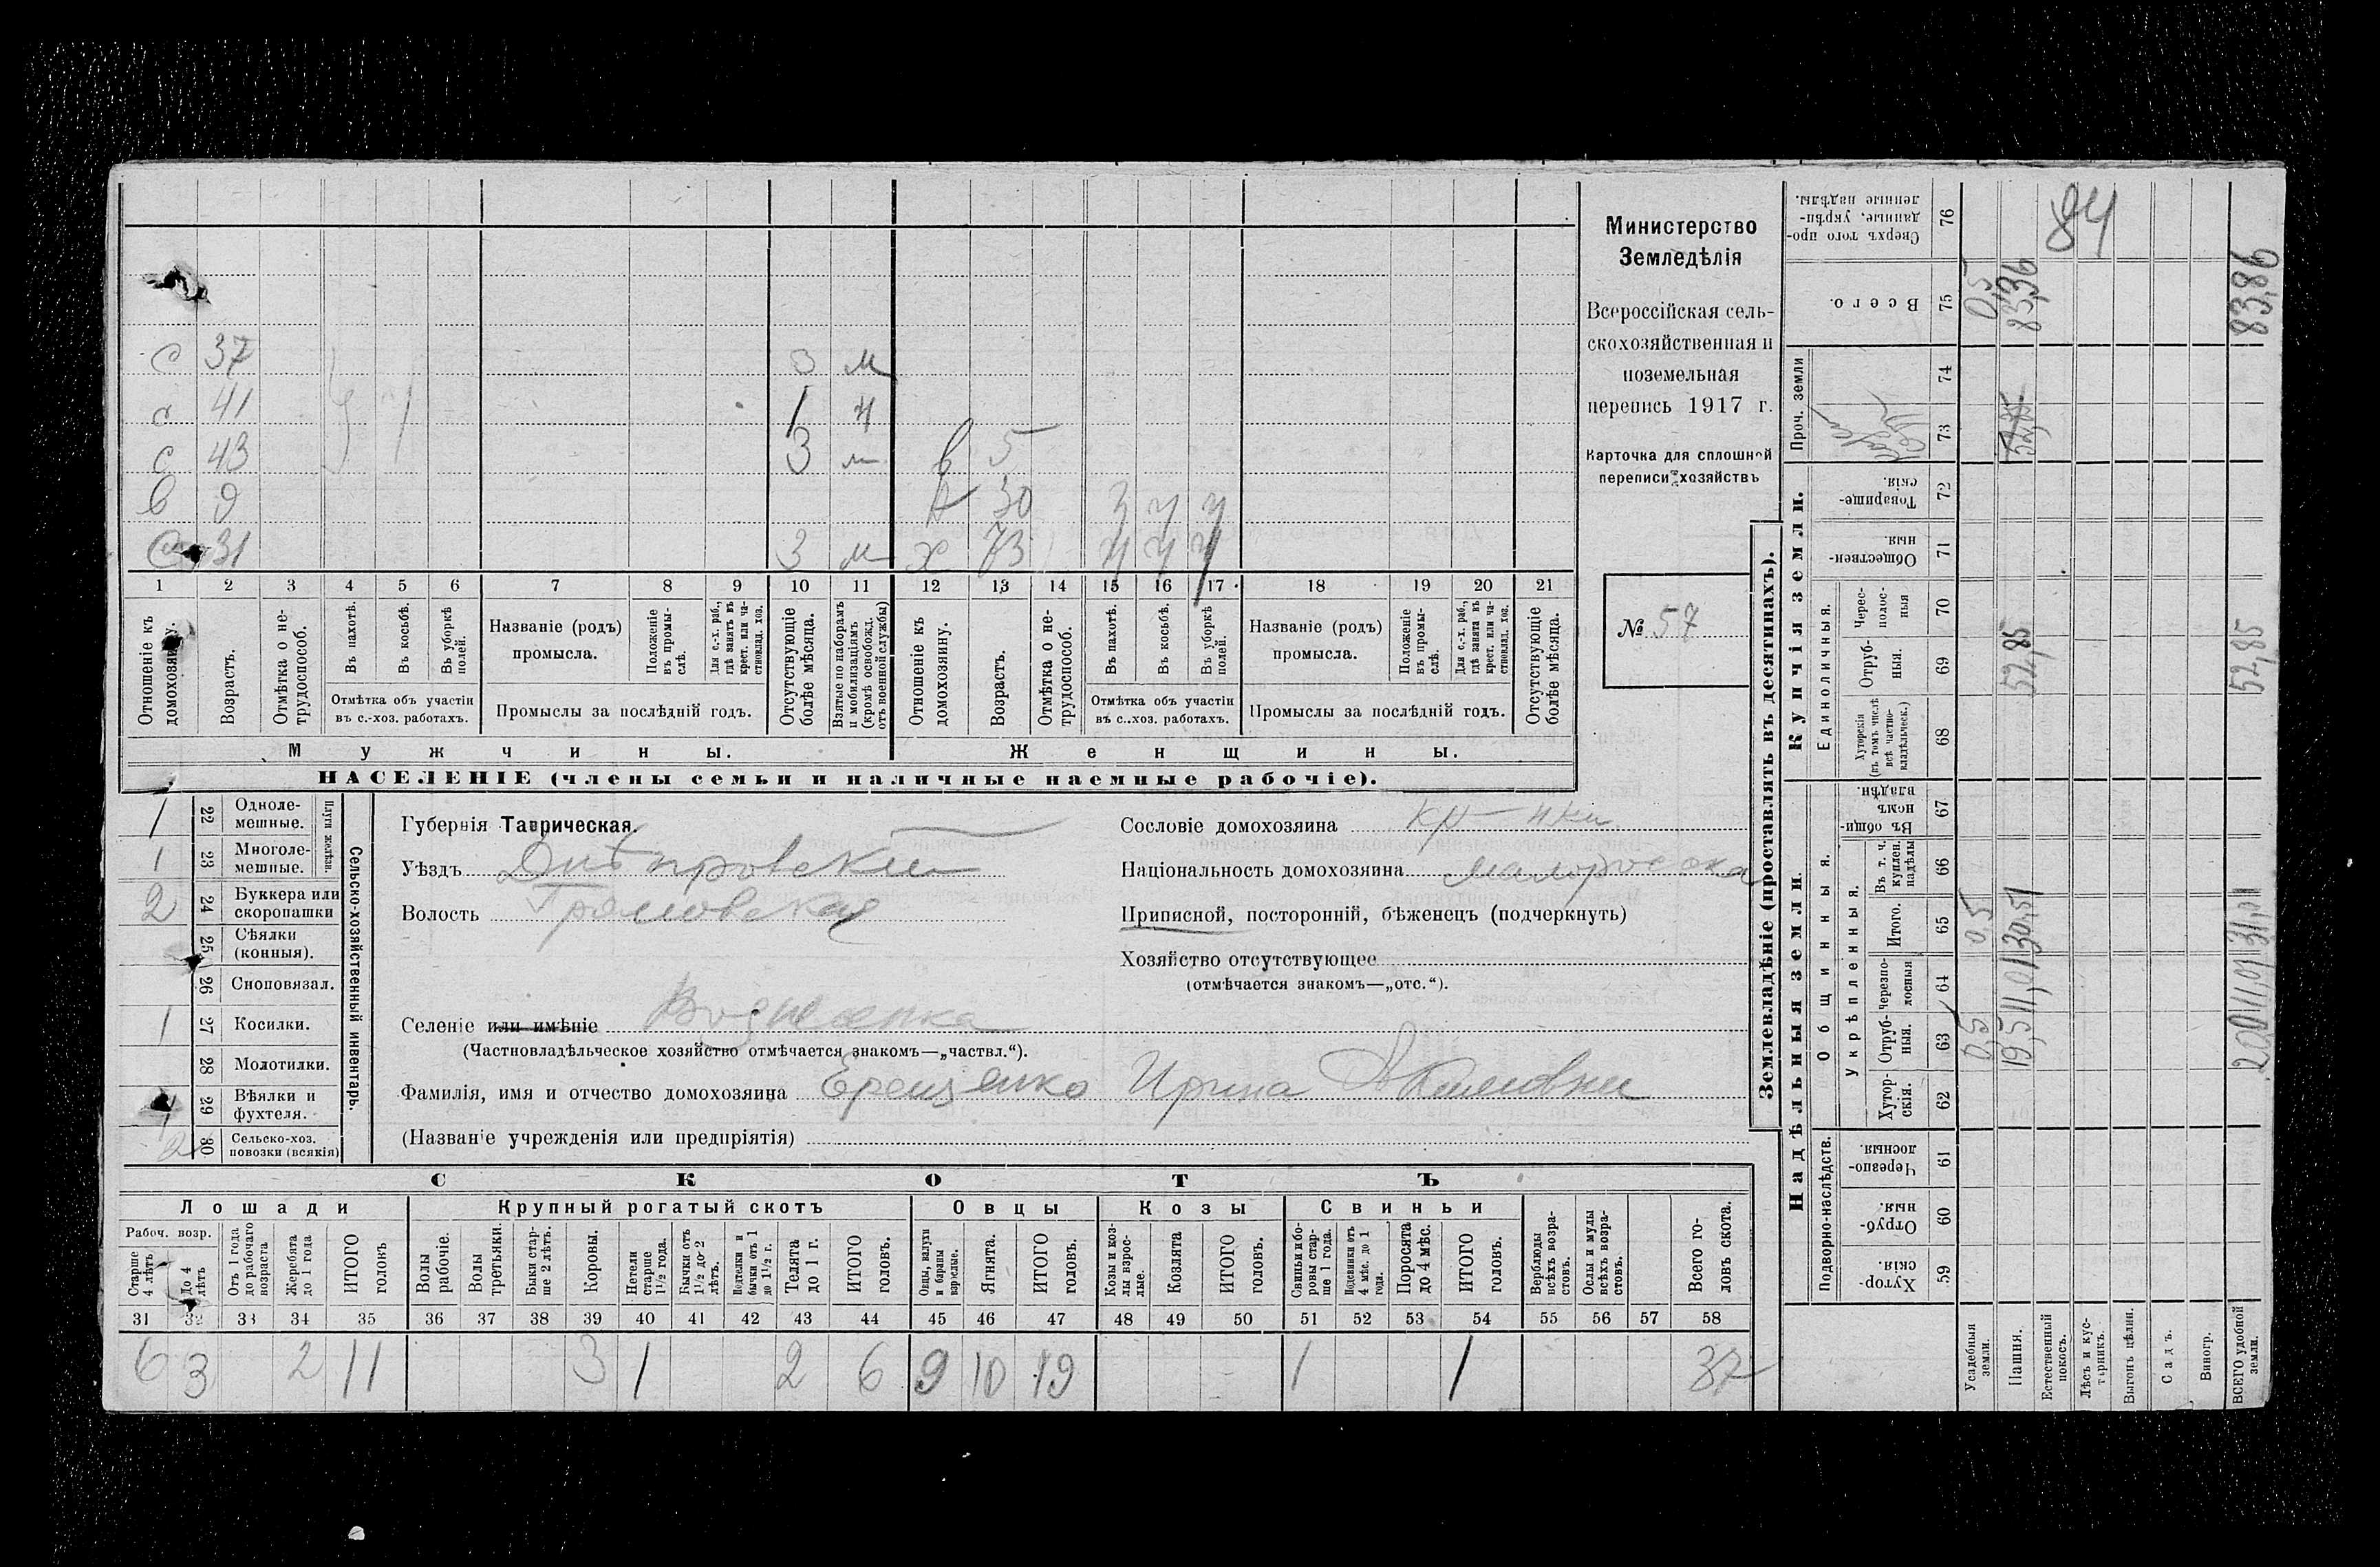 с 37 3 м
с 41 1 ч
с 43 3 м в 5
в 9 30 ч ч ч
с 31 3 м х 73 ч ч ч
1 2 3 4 5 6 7 8 9 10 11 12 13 14 15 16 17 18 19 20 21
Отношеніе къ домохозяину.
Возрастъ.
Отмѣтка о не-трудоспособ.
Въ пахотѣ.
Въ косьбѣ.
Въ уборкѣ полей.
Отмѣтка объ участіи
въ с.-хоз. работахъ.
Названіе (родъ)
промысла.
Положеніе въ промы-слѣ.
Для с.-х. раб., гдѣ занятъ въ крест. или ча-ствовлад. хоз.
Промыслы за послѣдній годъ.
Отсутствующіе болѣе мѣсяца.
Взятые по наборамъ и мобилизаціямъ (кромѣ освобожд. отъ военной службы)
Отношеніе къ домохозяину.
Возрастъ.
Отмѣтка о не-трудоспособ.
Въ пахотѣ.
Въ косьбѣ.
Въ уборкѣ полей.
Отмѣтка объ участіи
въ с..хоз. работахъ.
Названіе (родъ)
промысла.
Положеніе въ промы-слѣ.
Для с.-х. раб., гдѣ занята въ крест. или ча-ствовлад. хоз.
Промыслы за послѣдній годъ.
Отсутствующіе болѣе мѣсяца.
Мужчины.
Женщины.
НАСЕЛЕНІЕ (члены семьи и наличные наемные рабочіе).
Министерство
Земледѣлія
Всероссійская сель-
скохозяйственная и
поземельная
перепись 1917 г.
Карточка для сплошной
переписи хозяйствъ
№ 57
1 22 Одноле-мешные.
1 23 Многоле-мешные.
Плуги желѣзн.
2 24 Буккера или скоропашки
25 Сѣялки (конныя).
26 Сноповязал.
1 27 Косилки.
28 Молотилки.
29 Вѣялки и фухтеля.
2 30 Сельско-хоз. повозки (всякія)
Сельско-хозяйственный инвентарь.
Губернія Таврическая.
Уѣздъ Днѣпровскій
Волость Громовская
Селеніе или имѣніе Вознесенка
(Частновладѣльческое хозяйство отмѣчается знакомъ—„частвл.“).
Фамилія, имя и отчество домохозяина Ерещенко Ирина Акимовна
(Названіе учрежденія или предпріятія)
Сословіе домохозяина кр-нки
Національность домохозяина малоросска
Приписной, посторонній, бѣженецъ (подчеркнуть)
Хозяйство отсутствующее
(отмѣчается знакомъ—„отс.“).
СКОТЪ
Лошади
Крупный рогатый скотъ
Овцы
Козы
Свиньи
Рабоч. возр.
Старше 4 лѣтъ
До 4 лѣтъ
Отъ 1 года до рабочаго возраста
Жеребята до 1 года
ИТОГО головъ
Волы рабочіе.
Волы третьяки.
Быки стар-ше 2 лѣтъ.
Коровы.
Нетели старше 1½ года.
Бычки отъ 1½ до 2 лѣтъ.
Подтелки и бычки отъ 1 до 1½ г.
Телята до 1 г.
ИТОГО головъ.
Овцы, валухи и бараны взрослые.
Ягнята.
ИТОГО головъ.
Козы и коз-лы взрос-лые.
Козлята
ИТОГО головъ.
Свиньи и бо-ровы стар-ше 1 года.
Подсвинки отъ 4 мѣс. до 1 года.
Поросята до 4 мѣс.
ИТОГО головъ.
Верблюды всѣхъ возра-стовъ.
Ослы и мулы всѣхъ возра-стовъ.
Всего го-ловъ скота.
31 32 33 34 35 36 37 38 39 40 41 42 43 44 45 46 47 48 49 50 51 52 53 54 55 56 57 58
6 3 2 11 3 1 2 6 9 10 19 1 1 37
Землевладѣніе (проставлять въ десятинахъ).
Надѣльныя земли
Купчія земли.
Проч. земли
Подворно-наслѣдств.
Общинныя.
Укрѣпленныя.
Единоличныя.
Хутор-скія. 59
Отруб-ныя. 60
Черезпо-лосныя 61
Хутор-скія. 62
Отруб-ныя. 63
Черезпо-лосныя 64
Итого. 65
Въ т. ч. куплен. надѣлы 66
Въ общи-номъ владѣн. 67
Хуторскія (въ томъ числѣ всѣ частно-владѣльческ.) 68
Отруб-ныя. 69
Черес-полос-ныя 70
Обществен-ныя. 71
Товарище-скія. 72
73
74
Всего. 75
Сверхъ того про-данные, укрѣп-ленные надѣлы. 76
Усадебныя земли. 0,5 0,5 0,5
Пашня. 19,5 11,01 30,51 52,85 52,85 83,36
Естественный покосъ. 84
Лѣсъ и кус-тарникъ.
Выгонъ цѣлин.
Садъ.
Виногр.
ВСЕГО удобной земли. 20,0 11,01 31,01 52,85 83,86